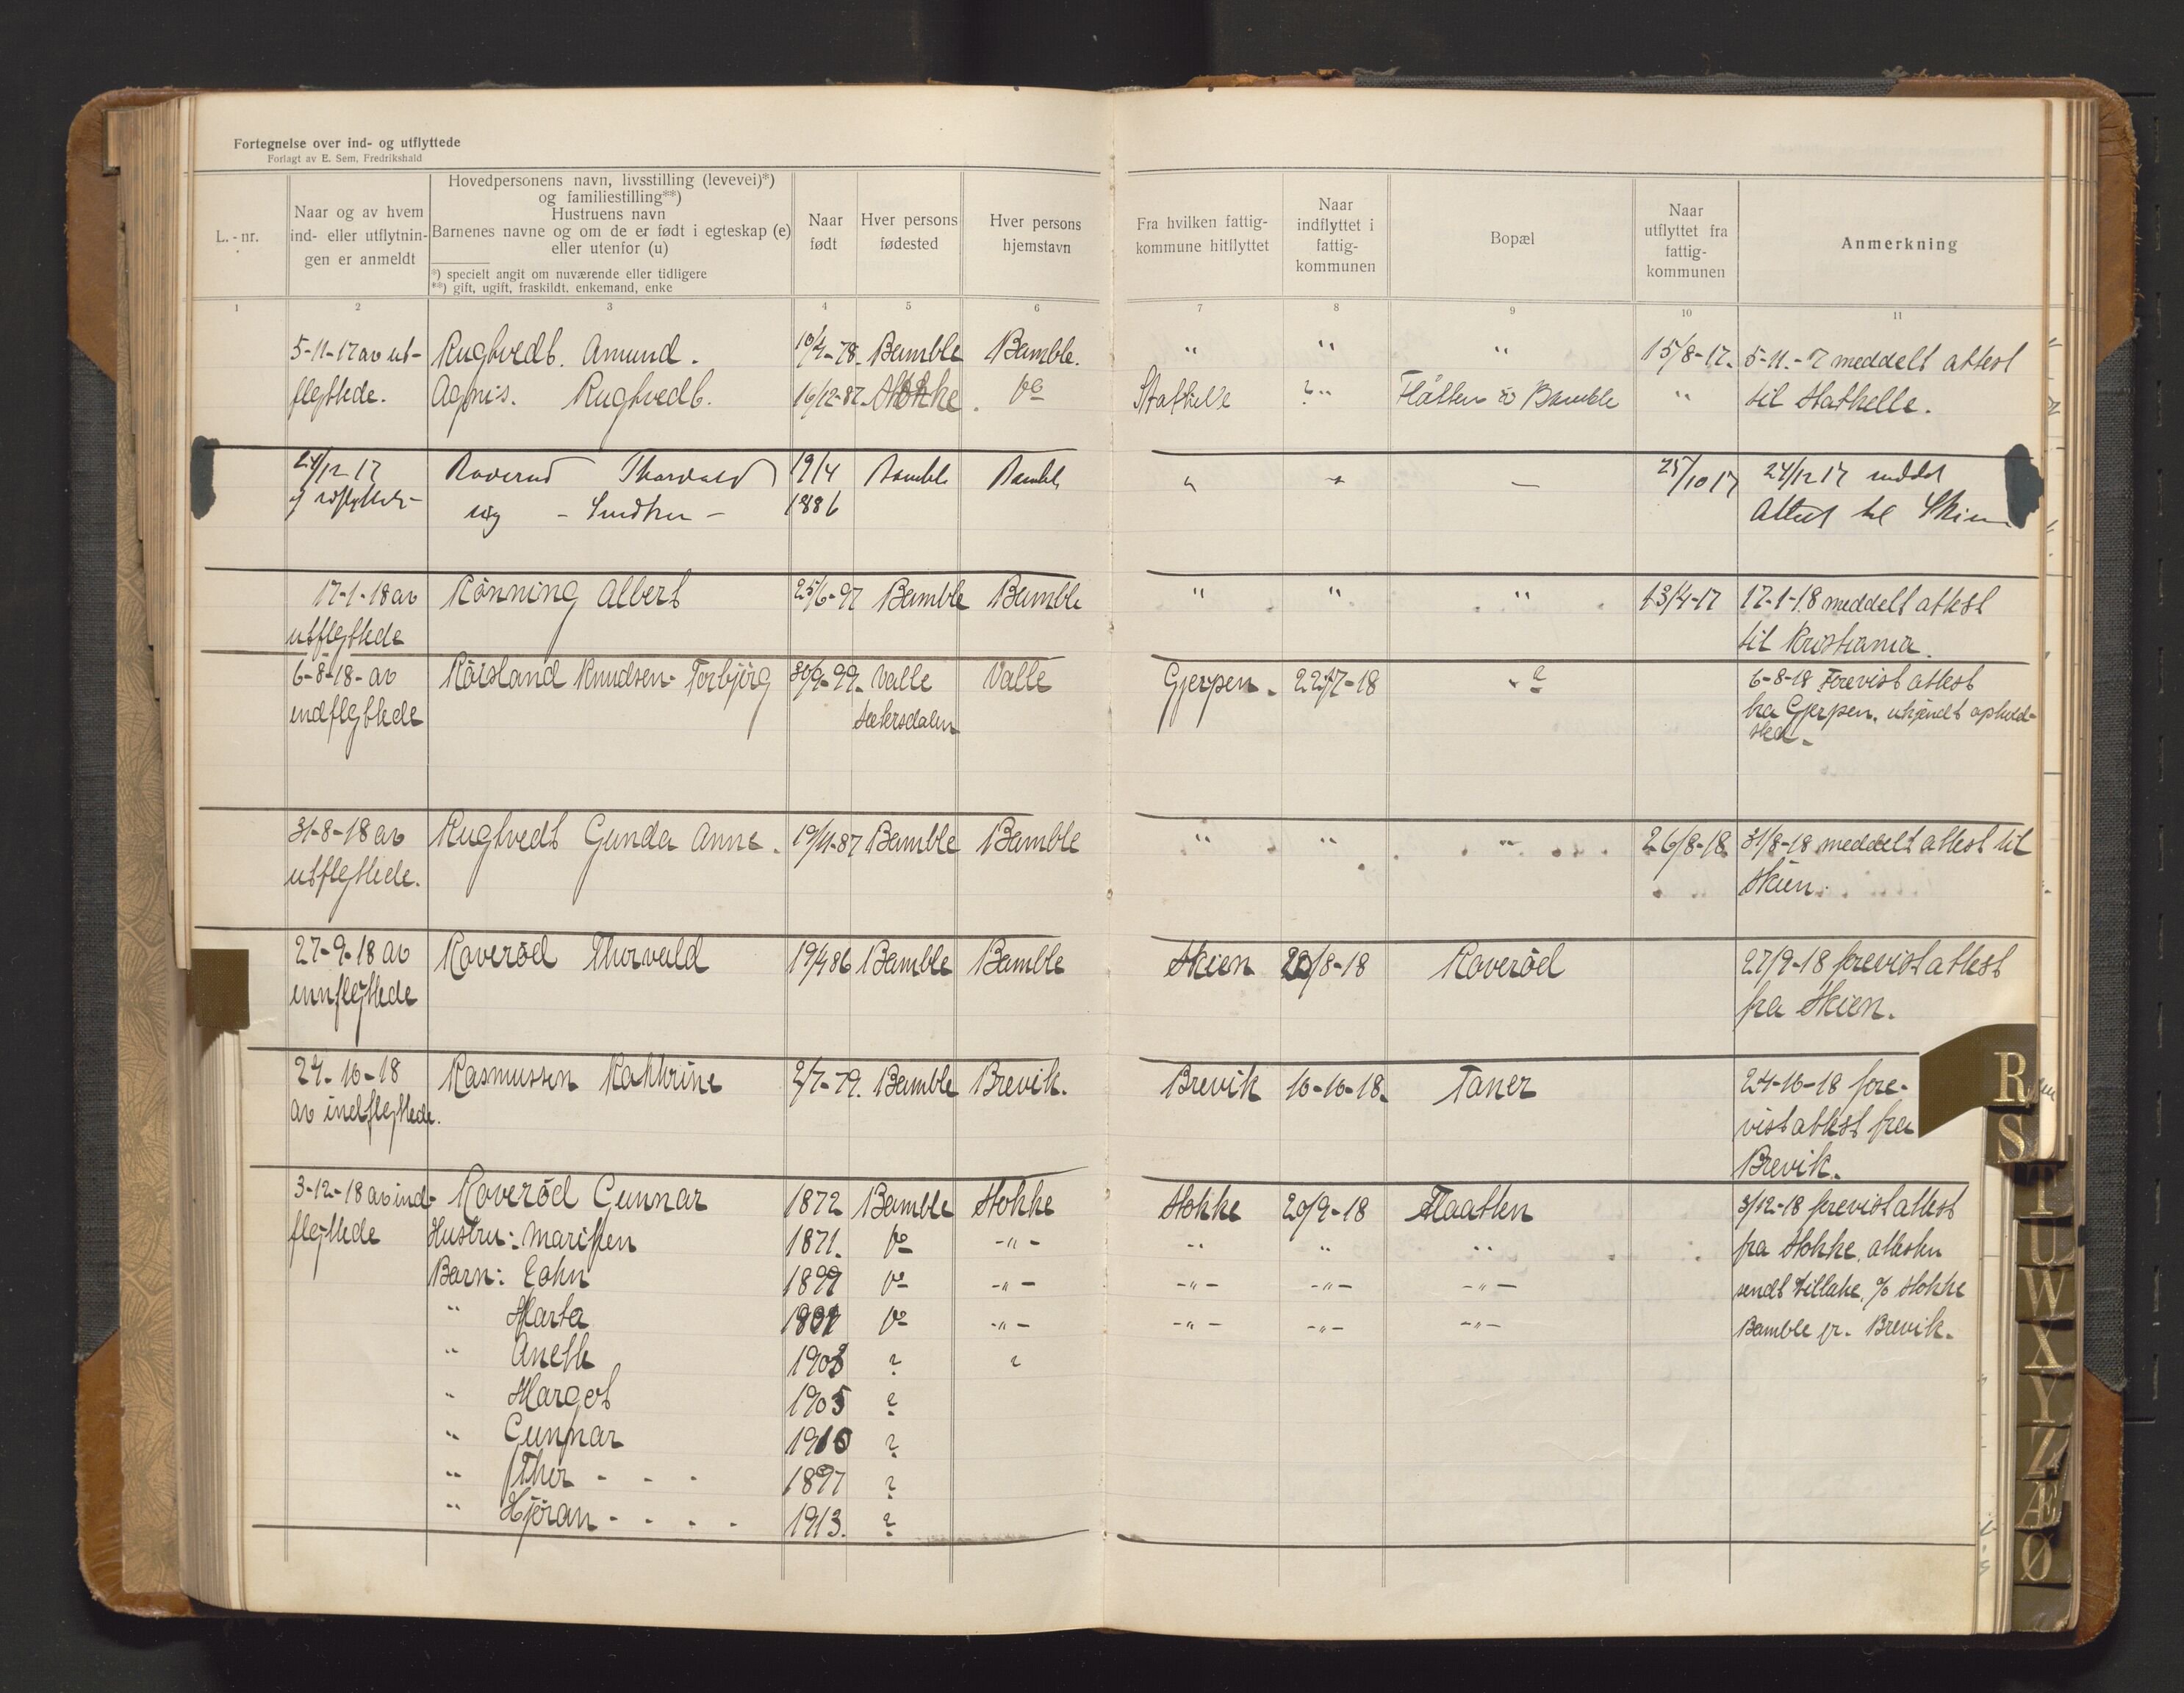 Fortegnelse over ind- og utflyttede
Forlagt av E. Sem, Fredrikshald
L.-nr.
Naar og av hvem
ind- eller utflytnin-
gen er anmeldt
Hovedpersonens navn, livsstilling (levevei)*)
og familiestilling**)
Hustruens navn
Barnenes navne og om de er født i egteskap (e)
eller utenfor (u)
*) specielt angit om nuværende eller tidligere
**) gift, ugift, fraskildt, enkemand, enke
Naar
født
Hver persons
fødested
Hver persons
hjemstavn
Fra hvilken fattig-
kommune hitflyttet
Naar
indflyttet i
fattig-
kommunen
Bopæl
Naar
utflyttet fra
fattig-
kommunen
Anmerkning
1 2 3 4 5 6 7 8 9 10 11
5-11-17 av ut- Rugtvedt. Amund. Bamble Bamble. " " " 15/8-17. 5-11.-7 meddelt attest
flyttede. Agnis. Rugtvedt. 16/12-87. Stokke. do Stathelle ? " Flåtten i Bamble " til Stathelle.
24/12 17 Roverud Thorvald 19/4 Bamble Bamble " " — 25/10 17 24/12 17 meddt
ug - Smedher - 1886 Attest til Skien
17-1-18 av Rönning Albert 25/6-97 Bamble Bamble " " " 13/4-17 17-1-18 meddelt attest
utflyttede til Kristiania.
6-8-18- av Röisland Knudsen- Torbjörg 30/9-99. Valle Valle Gjerpen. 22/7-18 " ? 6-8-18 Forevist attest
indflyttede Setersdalen fra Gjerpen. ukjendt ophold-
sted-
31-8-18 av Rugtvedt Gunda Anne. 19/11-87 Bamble Bamble " " " 26/8-18 31/8-18 meddelt attest til
utflyttede. Skien.
27-9-18 av Roveröd Thorvald 19/4 86 Bamble Bamble Skien 20/8-18 Roveröd 27/9-18 forevist attest
innflyttede fra Skien.
24-10-18 Rasmussen Kathrine 2/7-79. Bamble Brevik. Brevik 10-10-18. Taner 24-10-18 fore-
av indflyttede. vist attest fra
Brevik.
3-12-18 av ind- Roveröd Gunnar 1872 Bamble Stokke Stokke 20/9-18 Flaatten 3/12-18 forevist attest
flyttede Hustru: Maripen 1871. do -"- " " " fra Stokke, attesten
Barn: John 1899 do -"- -"- -"- -"- sendt tilbake, % Stokke
" Marta 1901 do -"- -"- -"- -"- Bamble pr. Brevik.
" Aneth 1903 ? ?
" Margot 1905 ?
" Gunnar 1910 ?
" Thor - - - 1897 ?
" Hjöran - - - - 1913. ?
R
S
T
U
W
X
Y
Z
Æ
Ø